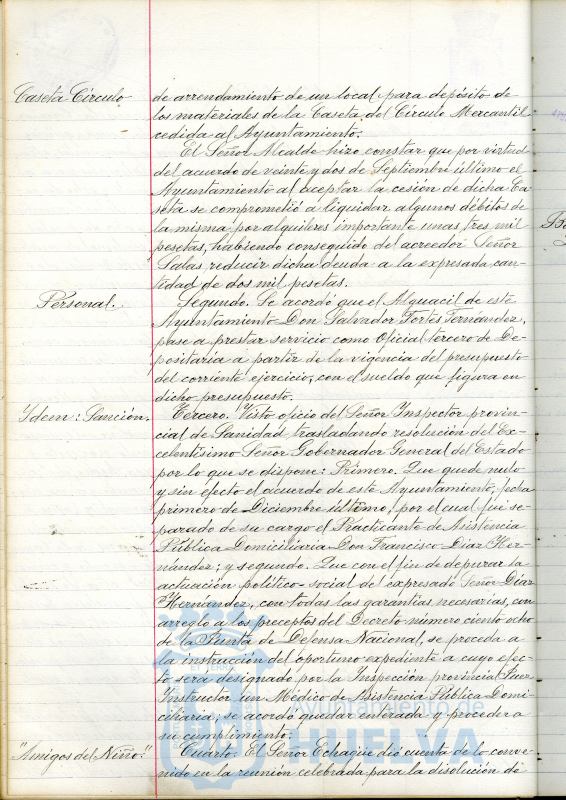 Caseta Círculo
de arrendamiento de un local para depósito de
los materiales de la Caseta del Círculo Mercantil
cedida al Ayuntamiento.
El Señor Alcalde hizo constar que por virtud
del acuerdo de veinte y dos de Septiembre último el
Ayuntamiento al aceptar la cesión de dicha Ca-
seta se comprometió a liquidar algunos débitos de
la misma por alquileres importante unas tres mil
pesetas, habiendo conseguido del acreedor Señor
Salas reducir dicha deuda a la expresada can-
tidad de dos mil pesetas.
Personal.
Segundo. Se acordó que el Alguacil de este
Ayuntamiento Don Salvador Fortes Fernandez,
pase a prestar servicio como Oficial tercero de De-
positaría a partir de la vigencia del presupuesto
del corriente ejercicio, con el sueldo que figura en
dicho presupuesto.
Ydem: Sanción.
Tercero. Visto oficio del Señor Inspector provin-
cial de Sanidad trasladando resolución del Ex-
celentísimo Señor Gobernador General del Estado
por lo que se dispone: Primero. Que quede nulo
y sin efecto el acuerdo de este Ayuntamiento, fecha
primero de Diciembre último, por el cual fue se-
parado de su cargo el Practicante de Asistencia
Pública Domiciliaria Don Francisco Diaz Her-
nández; y segundo. Que con el fin de depurar la
actuación político-social del expresado Señor Diaz
Hernández, con todas las garantías necesarias, con
arreglo a los preceptos del Decreto número ciento ocho
de la Junta de Defensa Nacional, se proceda a
la instrucción del oportuno expediente a cuyo efec-
to será designado por la Inspección provincial Juez
Instructor un Medico de Asistencia Pública Domi-
ciliaria; se acordó quedar enterada y proceder a
su cumplimiento.
"Amigos del Niño."
Cuarto. El Señor Echagüe dió cuenta de lo conve-
nido en la reunión celebrada para la disolución de
Ayuntamiento de
HUELVA